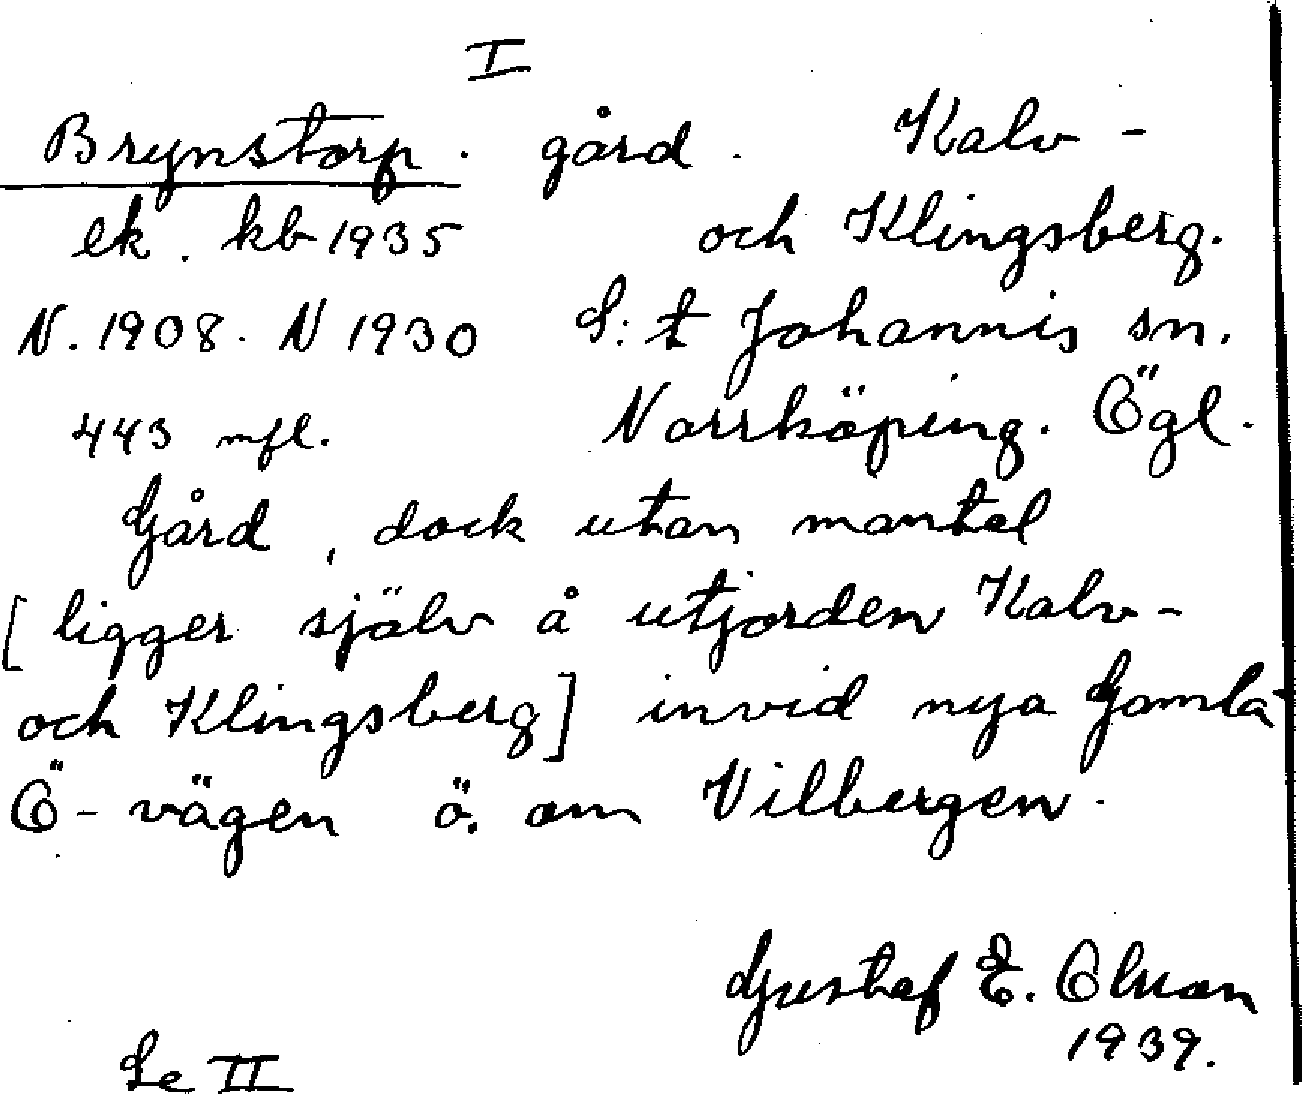 I
Brynstorp. gård. Kalv-
ek. kb 1935 och Klingsberg.
N. 1908. N 1930 S:t Johannis sn.
443 mfl. Norrköping. Ögl.
Gård, dock utan mantal
[ligger själv å utjorden Kalv-
och Klingsberg] invid nya Gamla
Ö-vägen ö. om Vilbergen.
Gustaf E. Olson
1939.
Se II